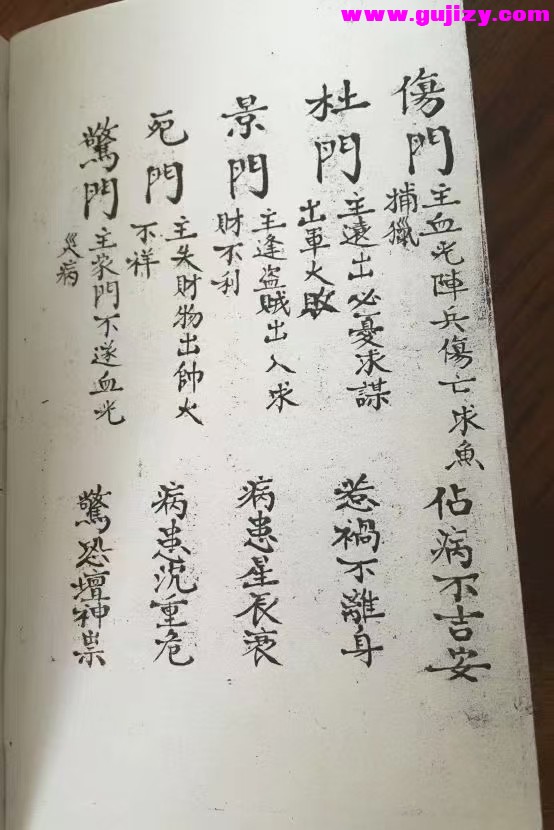 www.gujizy.com
傷門
主血光陣兵傷亡求魚
捕獵
佔病不吉安
杜門
主遠出必憂求謀
出軍火敗
惹禍不離身
景門
主逢盜賊出入求
財不利
病患星辰衰
死門
主失財物出帥火
不祥
病患沉重危
驚門
主家門不遂血光
災病
驚恐壇神祟